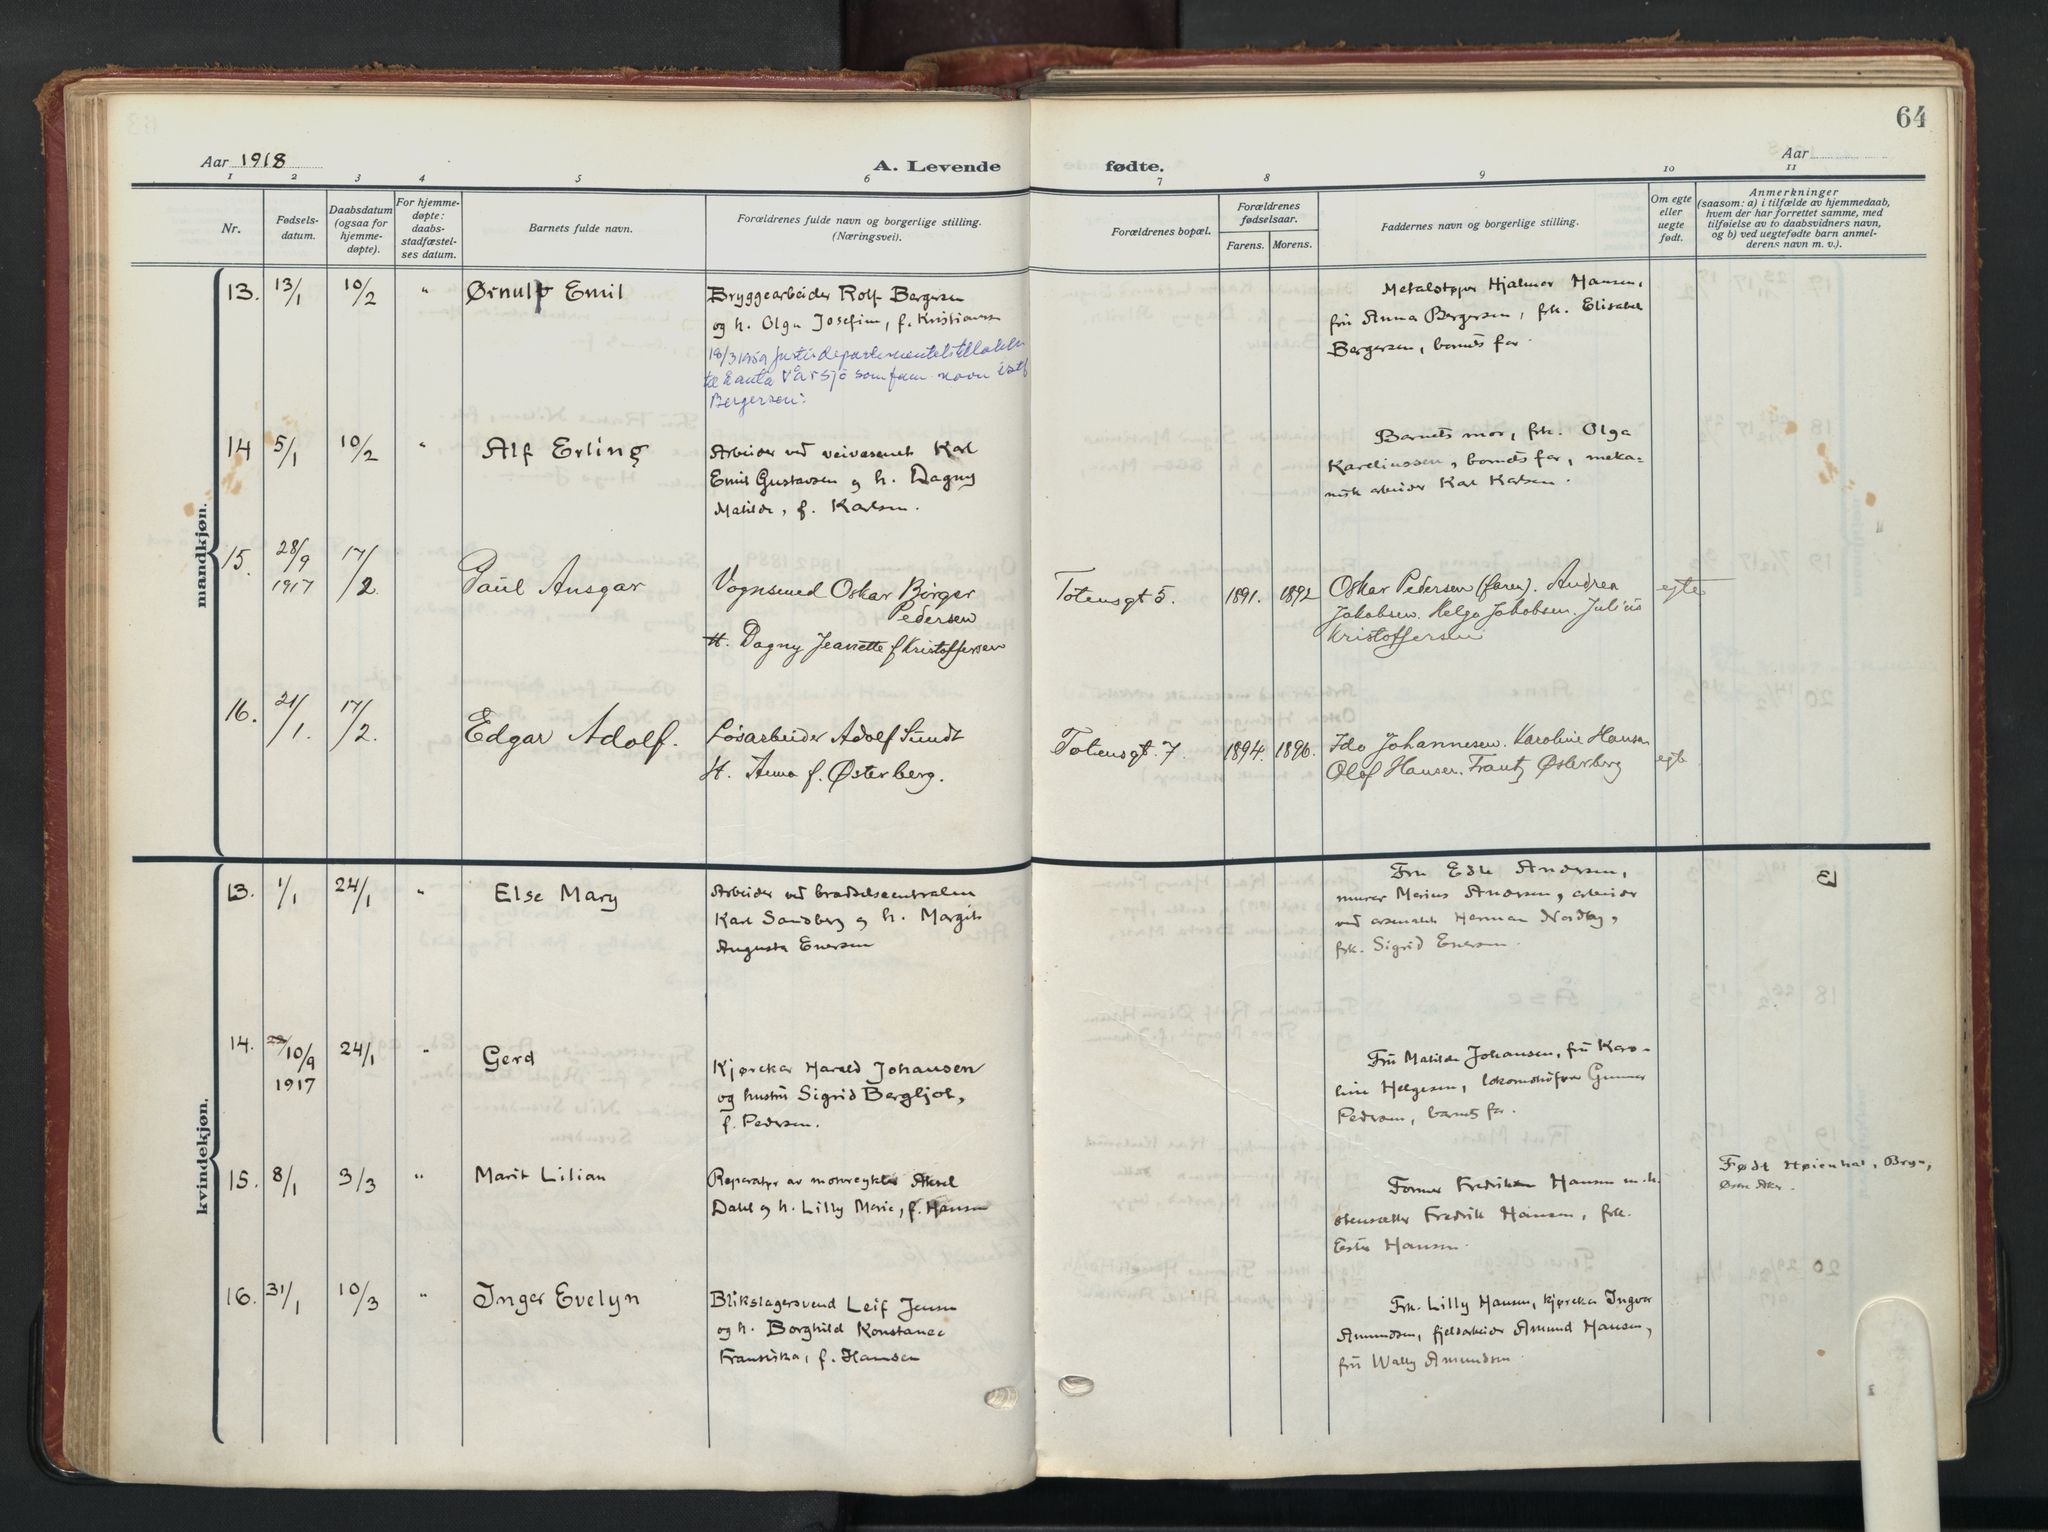 64
Aar 1918
A. Levende
fødte.
Aar
1 2 3 4 5 6 7 8 9 10 11
Nr.
Fødsels-
datum.
Daabsdatum
(ogsaa for
hjemme-
døpte).
For hjemme-
døpte:
daabs-
stadfæstel-
ses datum.
Barnets fulde navn.
Forældrenes fulde navn og borgerlige stilling.
(Næringsvei).
Forældrenes bopæl.
Forældrenes
fødselsaar.
Farens. Morens.
Faddernes navn og borgerlige stilling.
Om egte
eller
uegte
født.
Anmerkninger
(saasom: a) i tilfælde av hjemmedaab,
hvem der har forrettet samme, med
tilføielse av to daabsvidners navn,
og b) ved uegtefødte barn anmel-
derens navn m. v.).
mandkjøn.
13. 13/1 10/2 " Ørnulf Emil
Bryggearbeider Rolf Bergersen
og h. Olga Josefine, f. Kristiansen
18/3 1959 Justisdepartementets tillatelse
til å anta Vårsjø som fam. navn istf
Bergersen.
Metalstøper Hjalmar Hansen,
fru Anna Bergersen, frk. Elisabet
Bergersen, barnets far.
14 5/1 10/2 " Alf Erling
Arbeider ved veivæsenet Karl
Emil Gustavsen og h. Dagny
Matilde, f. Karlsen.
Barnets mor, frk. Olga
Kareliussen, barnets far, meka-
nisk arbeider Karl Karlsen.
15. 28/9 1917 17/2 Paul Ansgar
Vognsmed Oskar Birger
Pedersen
H. Dagny Jeanette f Kristoffersen
Totensgt 5. 1891. 1892
Oskar Pedersen (faren). Andrea
Jakobsen. Helga Jakobsen. Julius
Kristoffersen
egte
16. 21/1. 17/2. Edgar Adolf.
Løsarbeider Adolf Sundt
H. Anna f. Østerberg.
Totensgt. 7 1894. 1896.
Ida Johannesen. Karoline Hansen
Olof Hansen. Frantz Østerberg
egte
kvindekjøn.
13. 1/1 24/1 " Else Mary
Arbeider ved brædselscentralen
Karl Sandberg og h. Margit
Augusta Enersen
Fru Edle Andersen,
murer Marius Andersen, arbeider
ved arsenalet Herman Nordby,
frk. Sigrid Enersen.
14. 10/9 1917 24/1 " Gerd
Kjørekar Harald Johansen
og hustru Sigrid Bergljot,
f. Pedersen.
Fru Matilde Johansen, fru Karo-
line Helgesen, lokomotivfører Gunnar
Pedersen, barnets far.
15. 8/1 3/3 " Marit Lilian
Reparatør av motorcykler Aksel
Dahl og h. Lilly Marie, f. Hansen
Former Fredriksen Hansen m. h.
stensætter Fredrik Hansen, frk.
Ester Hansen.
Født Høienhal, Bryn,
Østre Aker.
16. 31/1 10/3 " Inger Evelyn
Blikslagersvend Leif Jensen
og h. Borghild Konstance
Fransiska, f. Hansen
Frk. Lilly Hansen, kjørekar Ingvar
Amundsen, fjelsarbeider Amund Hansen,
fru Wally Amundsen.